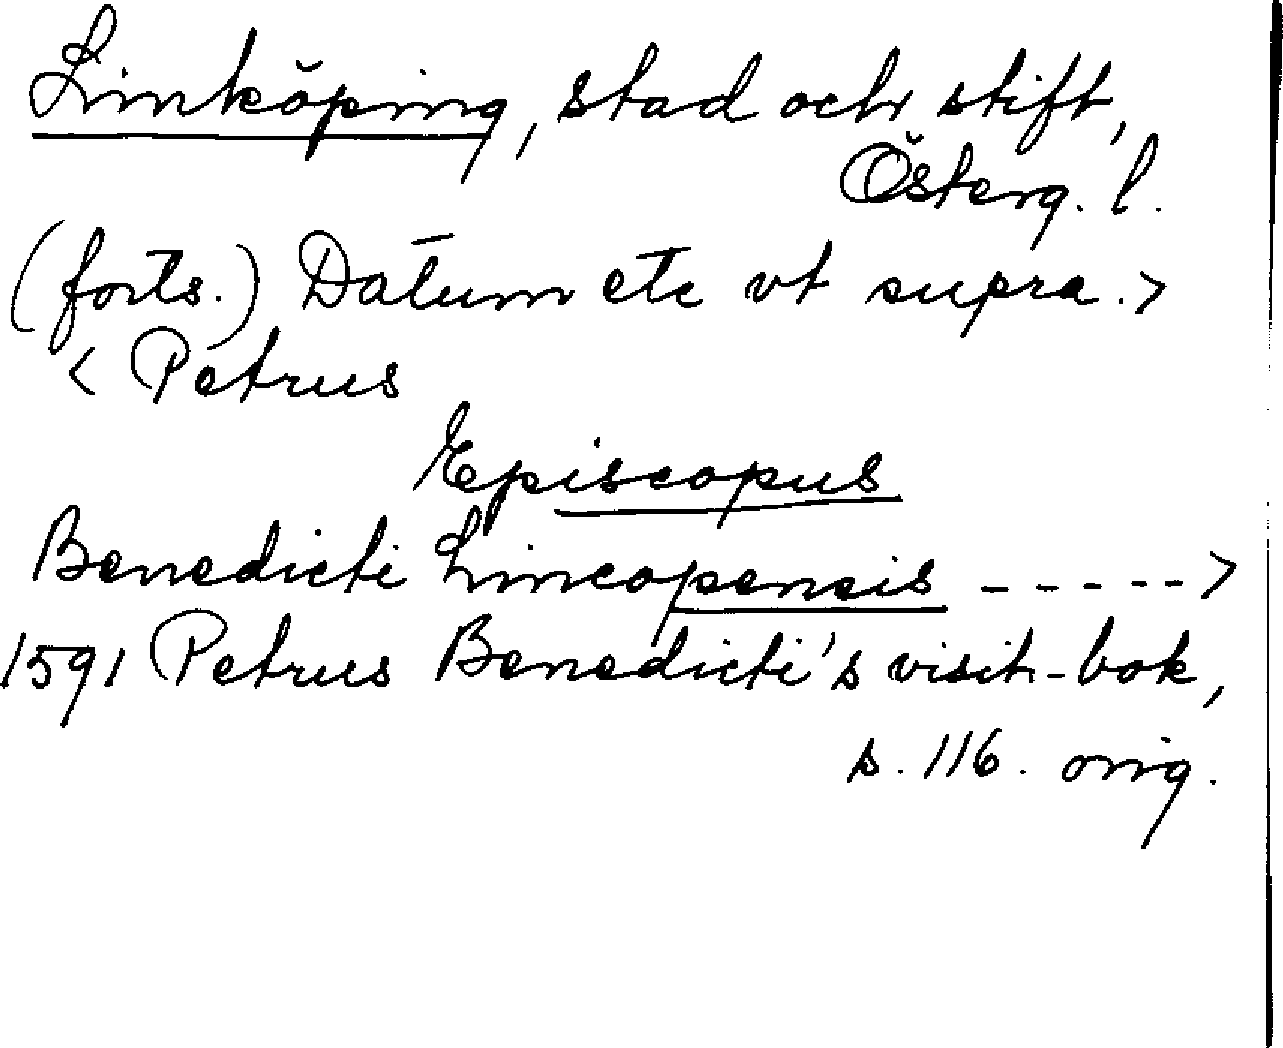 Linköping, stad och stift,
Österg. l.
(forts.) Datum etc vt supra.>
< Petrus
Episcopus
Benedicti Lincopensis ----->
1591 Petrus Benedicti's visit-bok,
s. 116. orig.